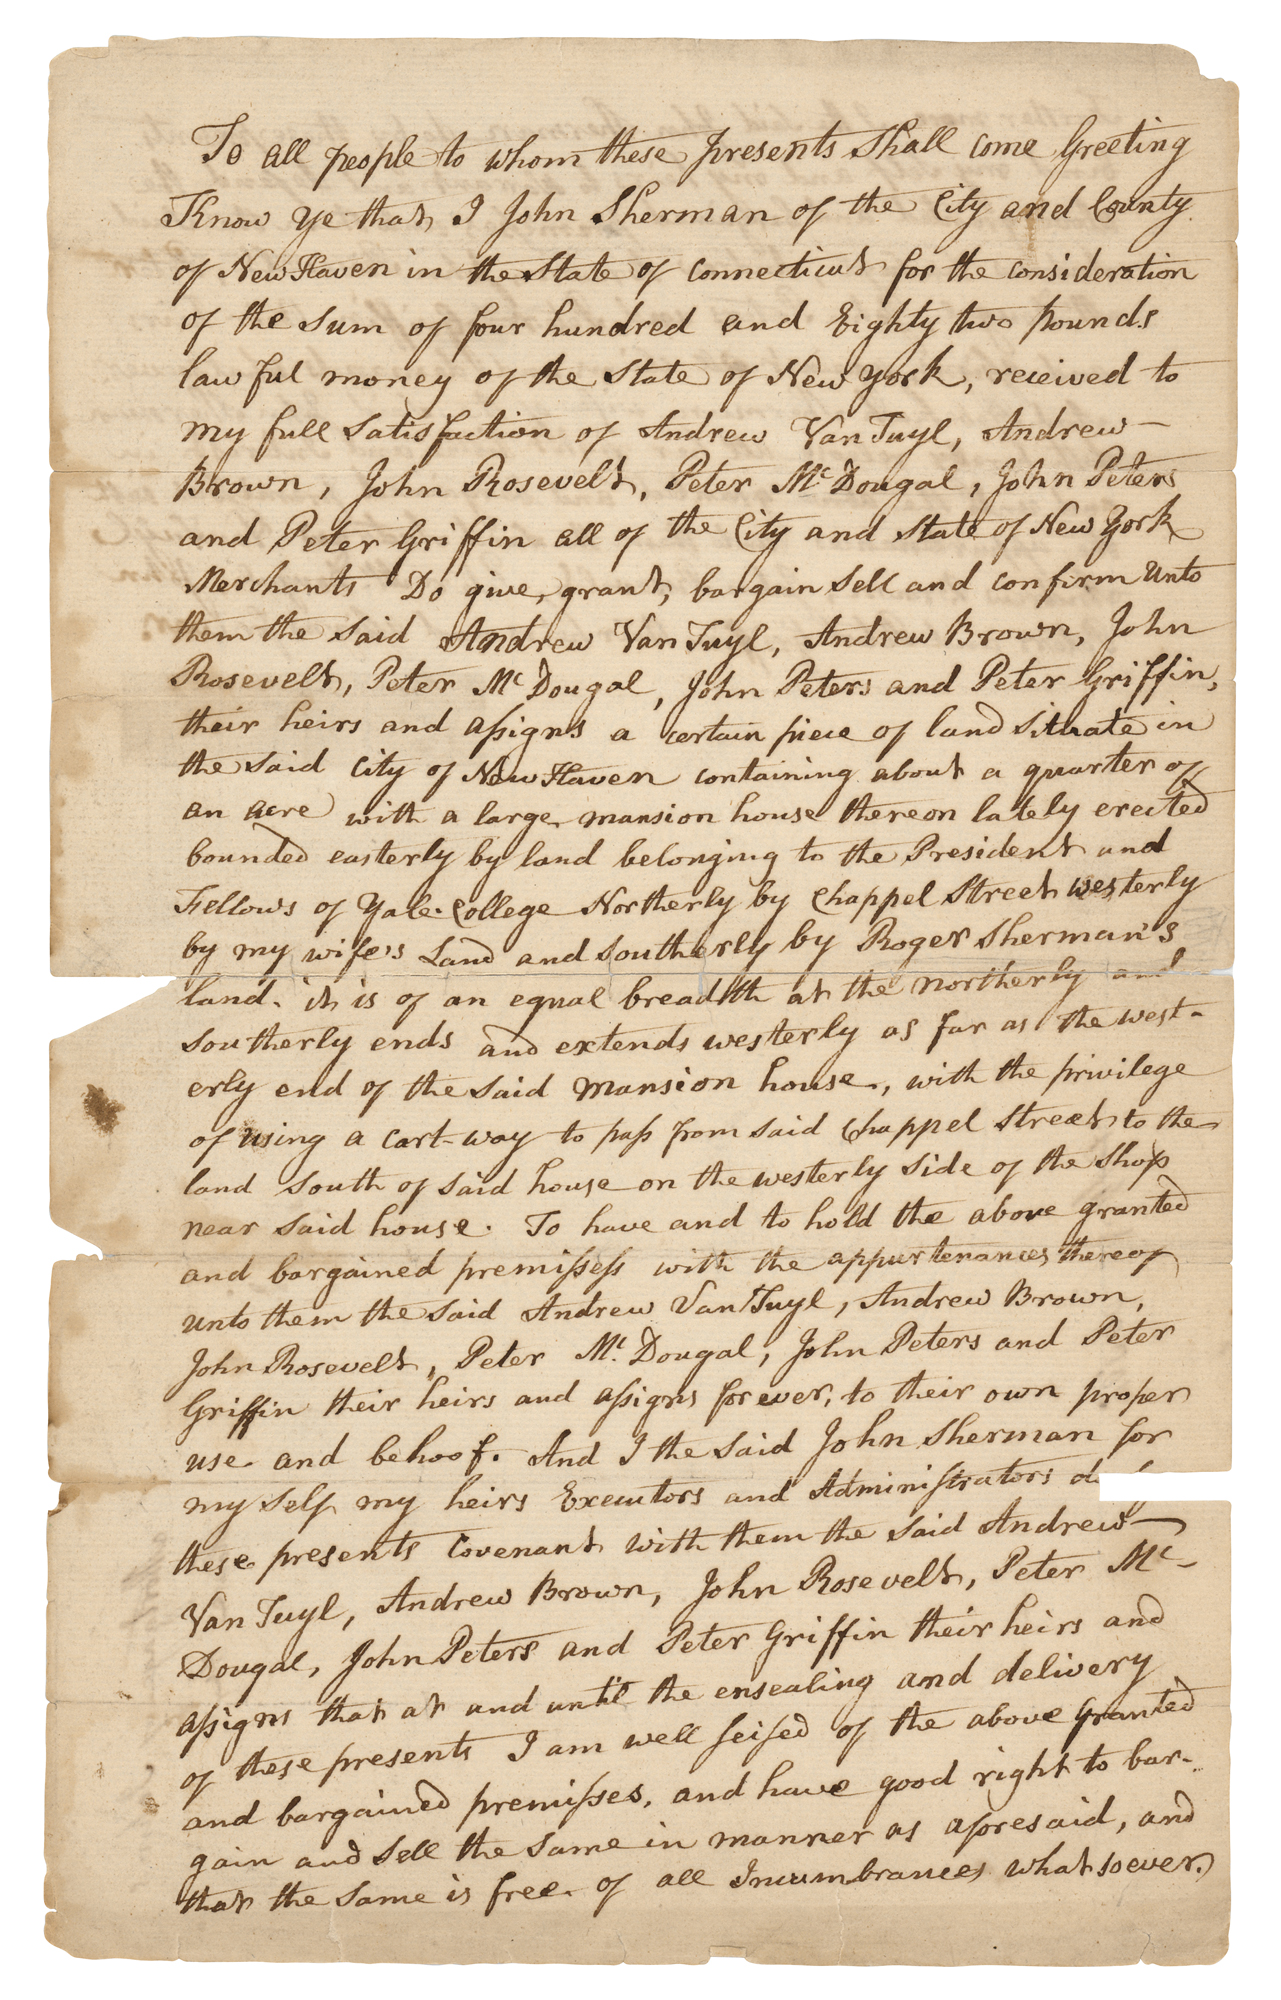 To all people to whom these presents Shall come Greeting
Know ye that I John Sherman of the City and County
of New Haven in the State of Connecticut for the consideration
of the sum of four hundred and Eighty two pounds
lawful money of the State of New York, received to
my full Satisfaction of Andrew Van Tuyl, Andrew
Brown, John Rosevelt, Peter McDougal, John Peters
and Peter Griffin all of the City and State of New York
Merchants Do give, grant, bargain Sell and confirm Unto
them the said Andrew Van Tuyl, Andrew Brown, John
Rosevelt, Peter Mc Dougal, John Peters and Peter Griffin,
their heirs and aſsigns a certain piece of land Situate in
the said City of New Haven containing about a quarter of
an acre with a large mansion house thereon lately erected
bounded easterly by land belonging to the President and
Fellows of Yale College Northerly by Chappel Street westerly
by my wife's Land and Southerly by Roger Sherman's
land. it is of an equal breadth at the northerly and
southerly ends and extends westerly as far as the west-
erly end of the said mansion house, with the privilege
of using a cart-way to paſs from said Chappel Street to the
land South of said house on the westerly side of the Shop
near said house. To have and to hold the above granted
and bargained premiſseſs with the appurtenances thereof
unto them the said Andrew Van Tuyl, Andrew Brown,
John Rosevelt, Peter Mc. Dougal, John Peters and Peter
Griffin their heirs and aſsigns for ever, to their own proper
use and behoof. And I the said John Sherman for
my self my heirs Executors and Adminiſtrators
these presents Covenant with them the said Andrew
Van Tuyl, Andrew Brown, John Rosevelt, Peter Mc-
Dougal, John Peters and Peter Griffin their heirs and
aſsigns that at and until the ensealing and delivery
of these presents I am well ſeiſed of the above granted
and bargained premiſses, and have good right to bar-
gain and Sell the Same in manner as aforesaid, and
that the Same is free of all Incumbrances whatsoever.